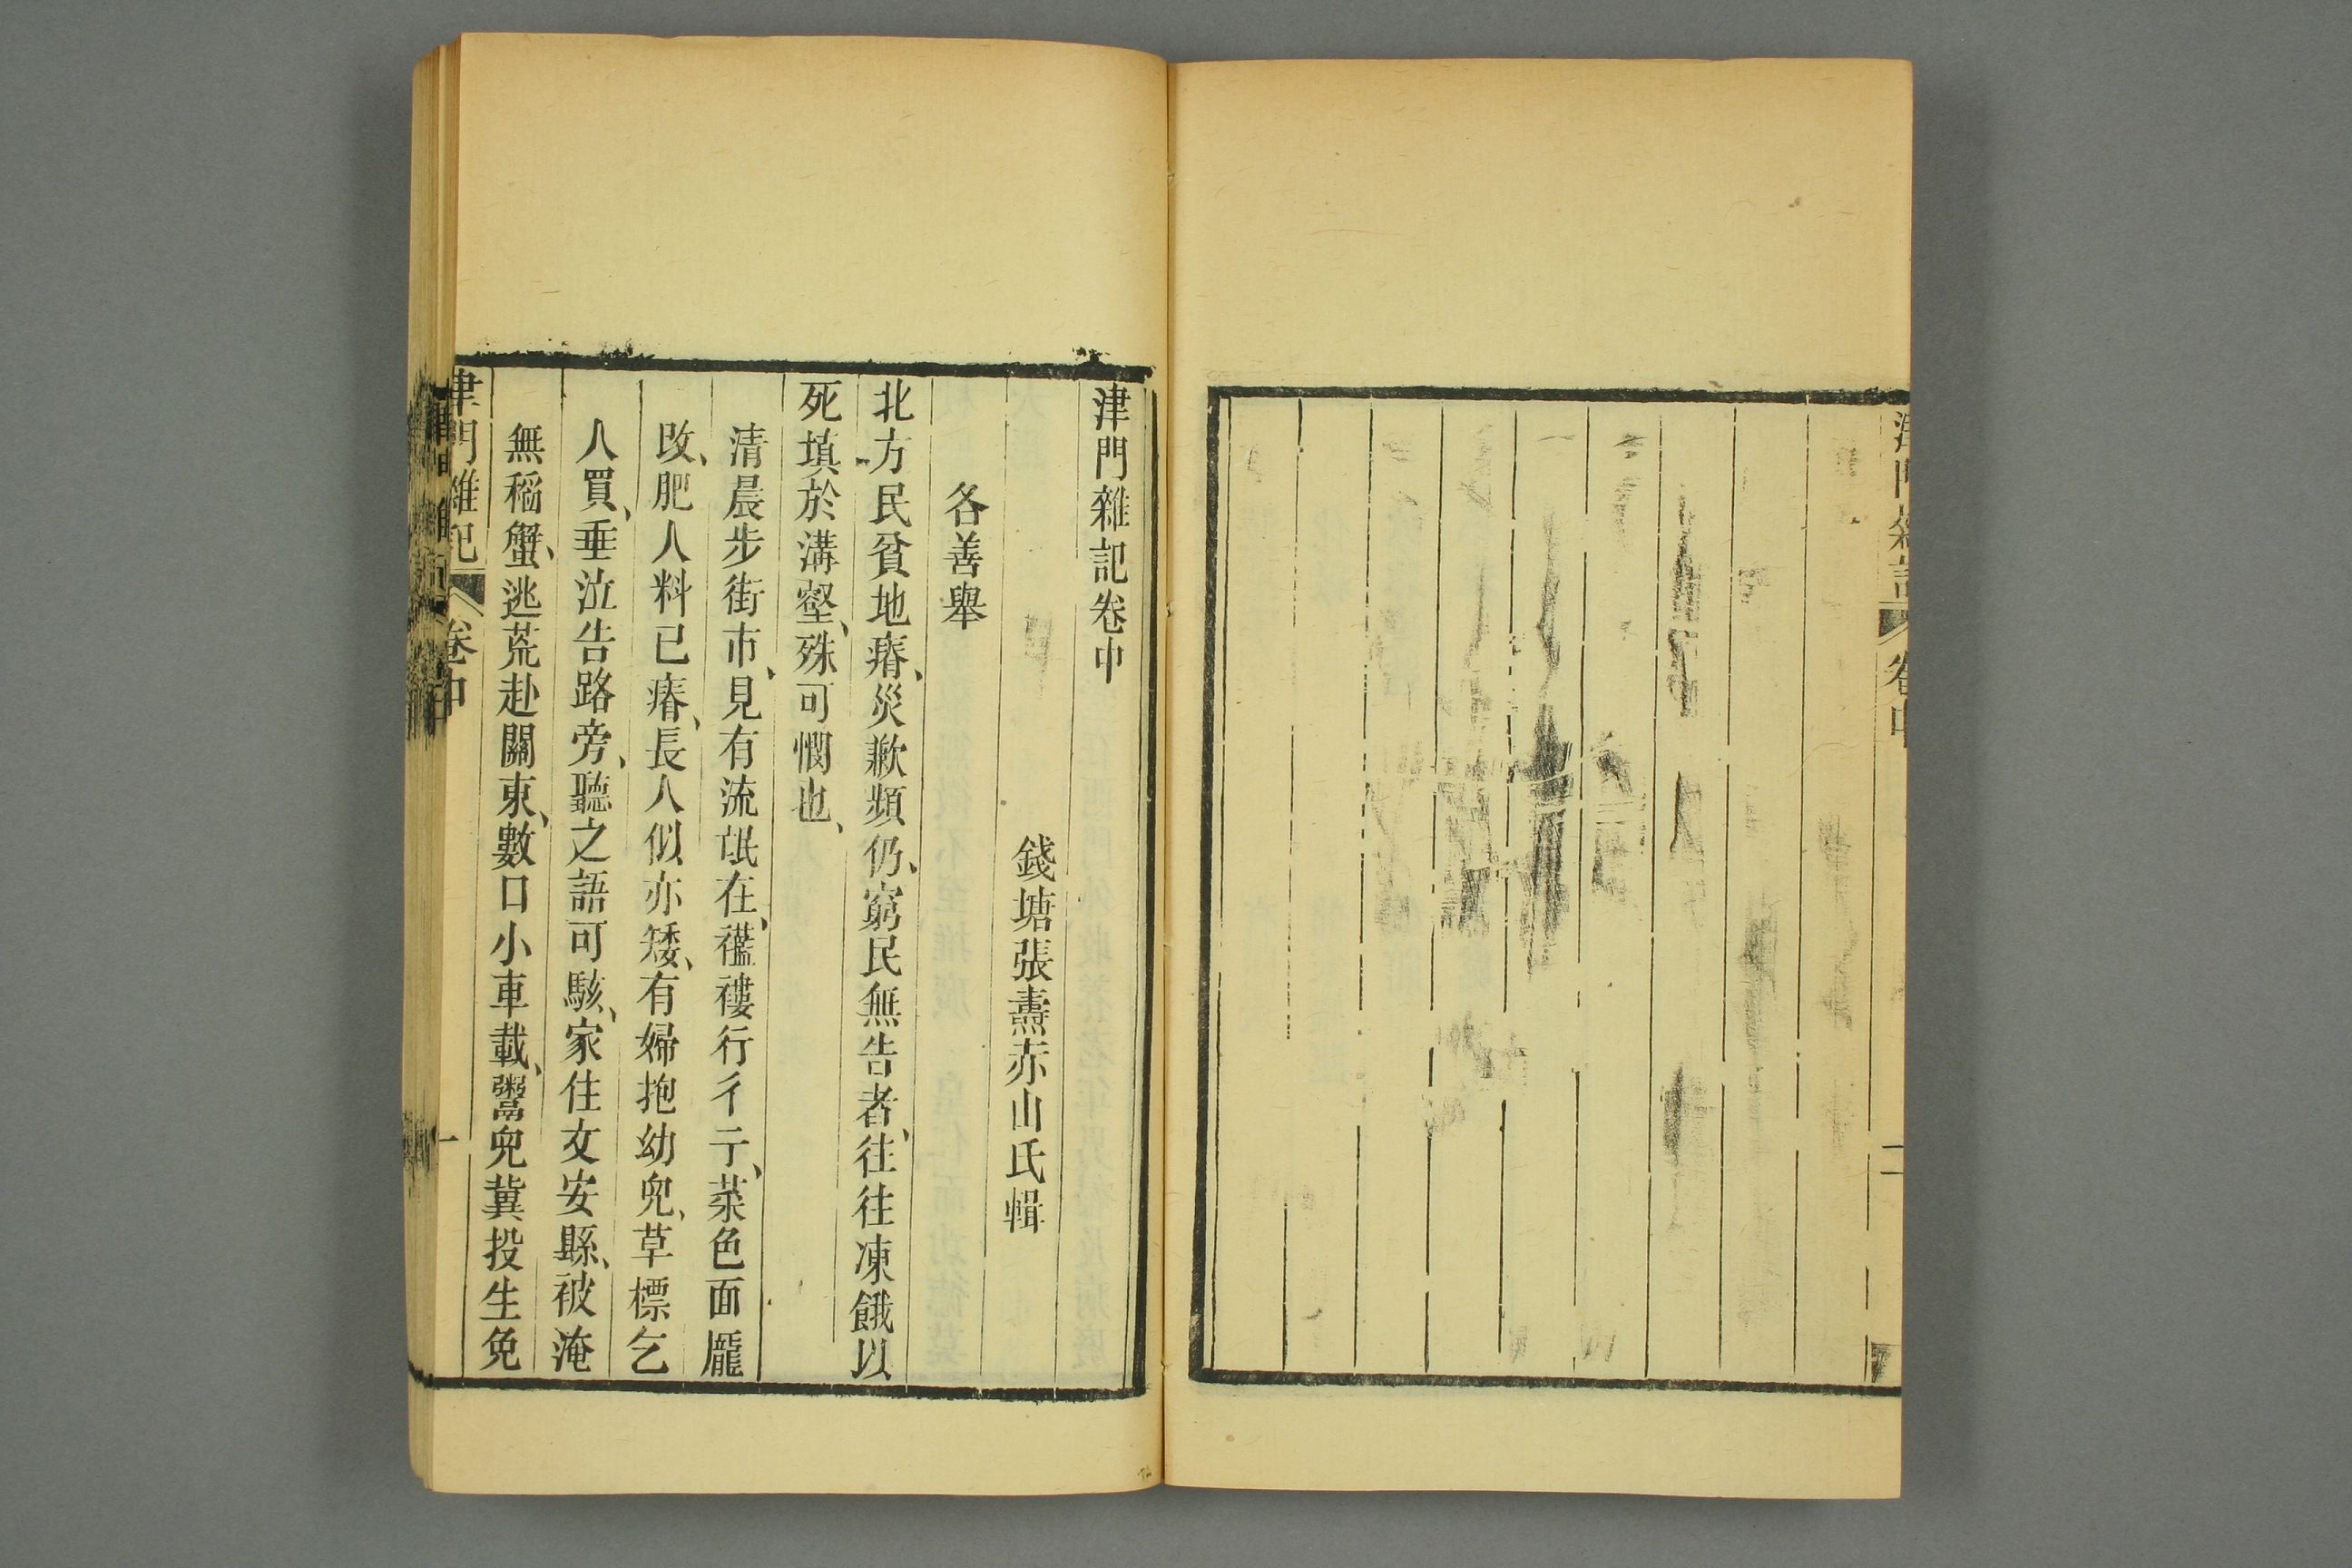 津門雜記
卷中
二
津門雜記卷中
錢塘張燾赤山氏輯
各善舉
北方民貧地瘠、災歉頻仍、窮民無告者、往往凍餓以
死填於溝壑、殊可憫也、
清晨步街市、見有流氓在、襤褸行彳亍、菜色面龐
改、肥人料已瘠、長人似亦矮、有婦抱幼兒、草標乞
人買、垂泣告路旁、聽之語可駭、家住文安縣、被淹
無稻蟹、逃荒赴關東、數口小車載、鬻兒冀投生免
津門雜記
卷中
一